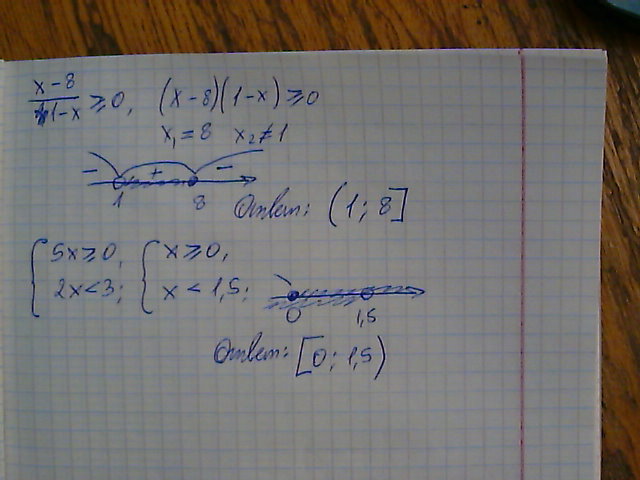 x-8/1-x ≥0, (x-8)(1-x)≥0
x₁=8 x₂≠1
- + -
1 8
Ответ: (1; 8]
{ 5x≥0, { x≥0,
2x<3; x<1,5;
0 1,5
Ответ: [0; 1,5)